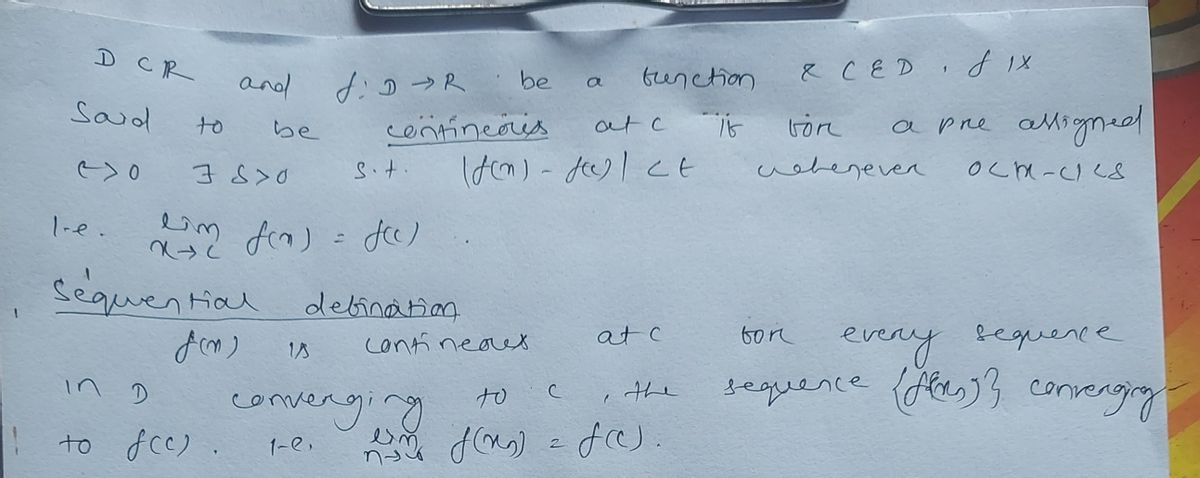 D ⊂ R and f: D → R be a function & C ∈ D, f is
Said to be contineous at c if for a pre assigned
ϵ>0 ∃ δ>0 s.t. |f(x) - f(c)| < ϵ whenever 0<|x-c|<δ
i.e. lim x→c f(x) = f(c).
Sequential defination
f(x) is contineous at c for every sequence
in D converging to c, the sequence {f(xn)} converging
to f(c). i.e. lim n→∞ f(xn) = f(c).